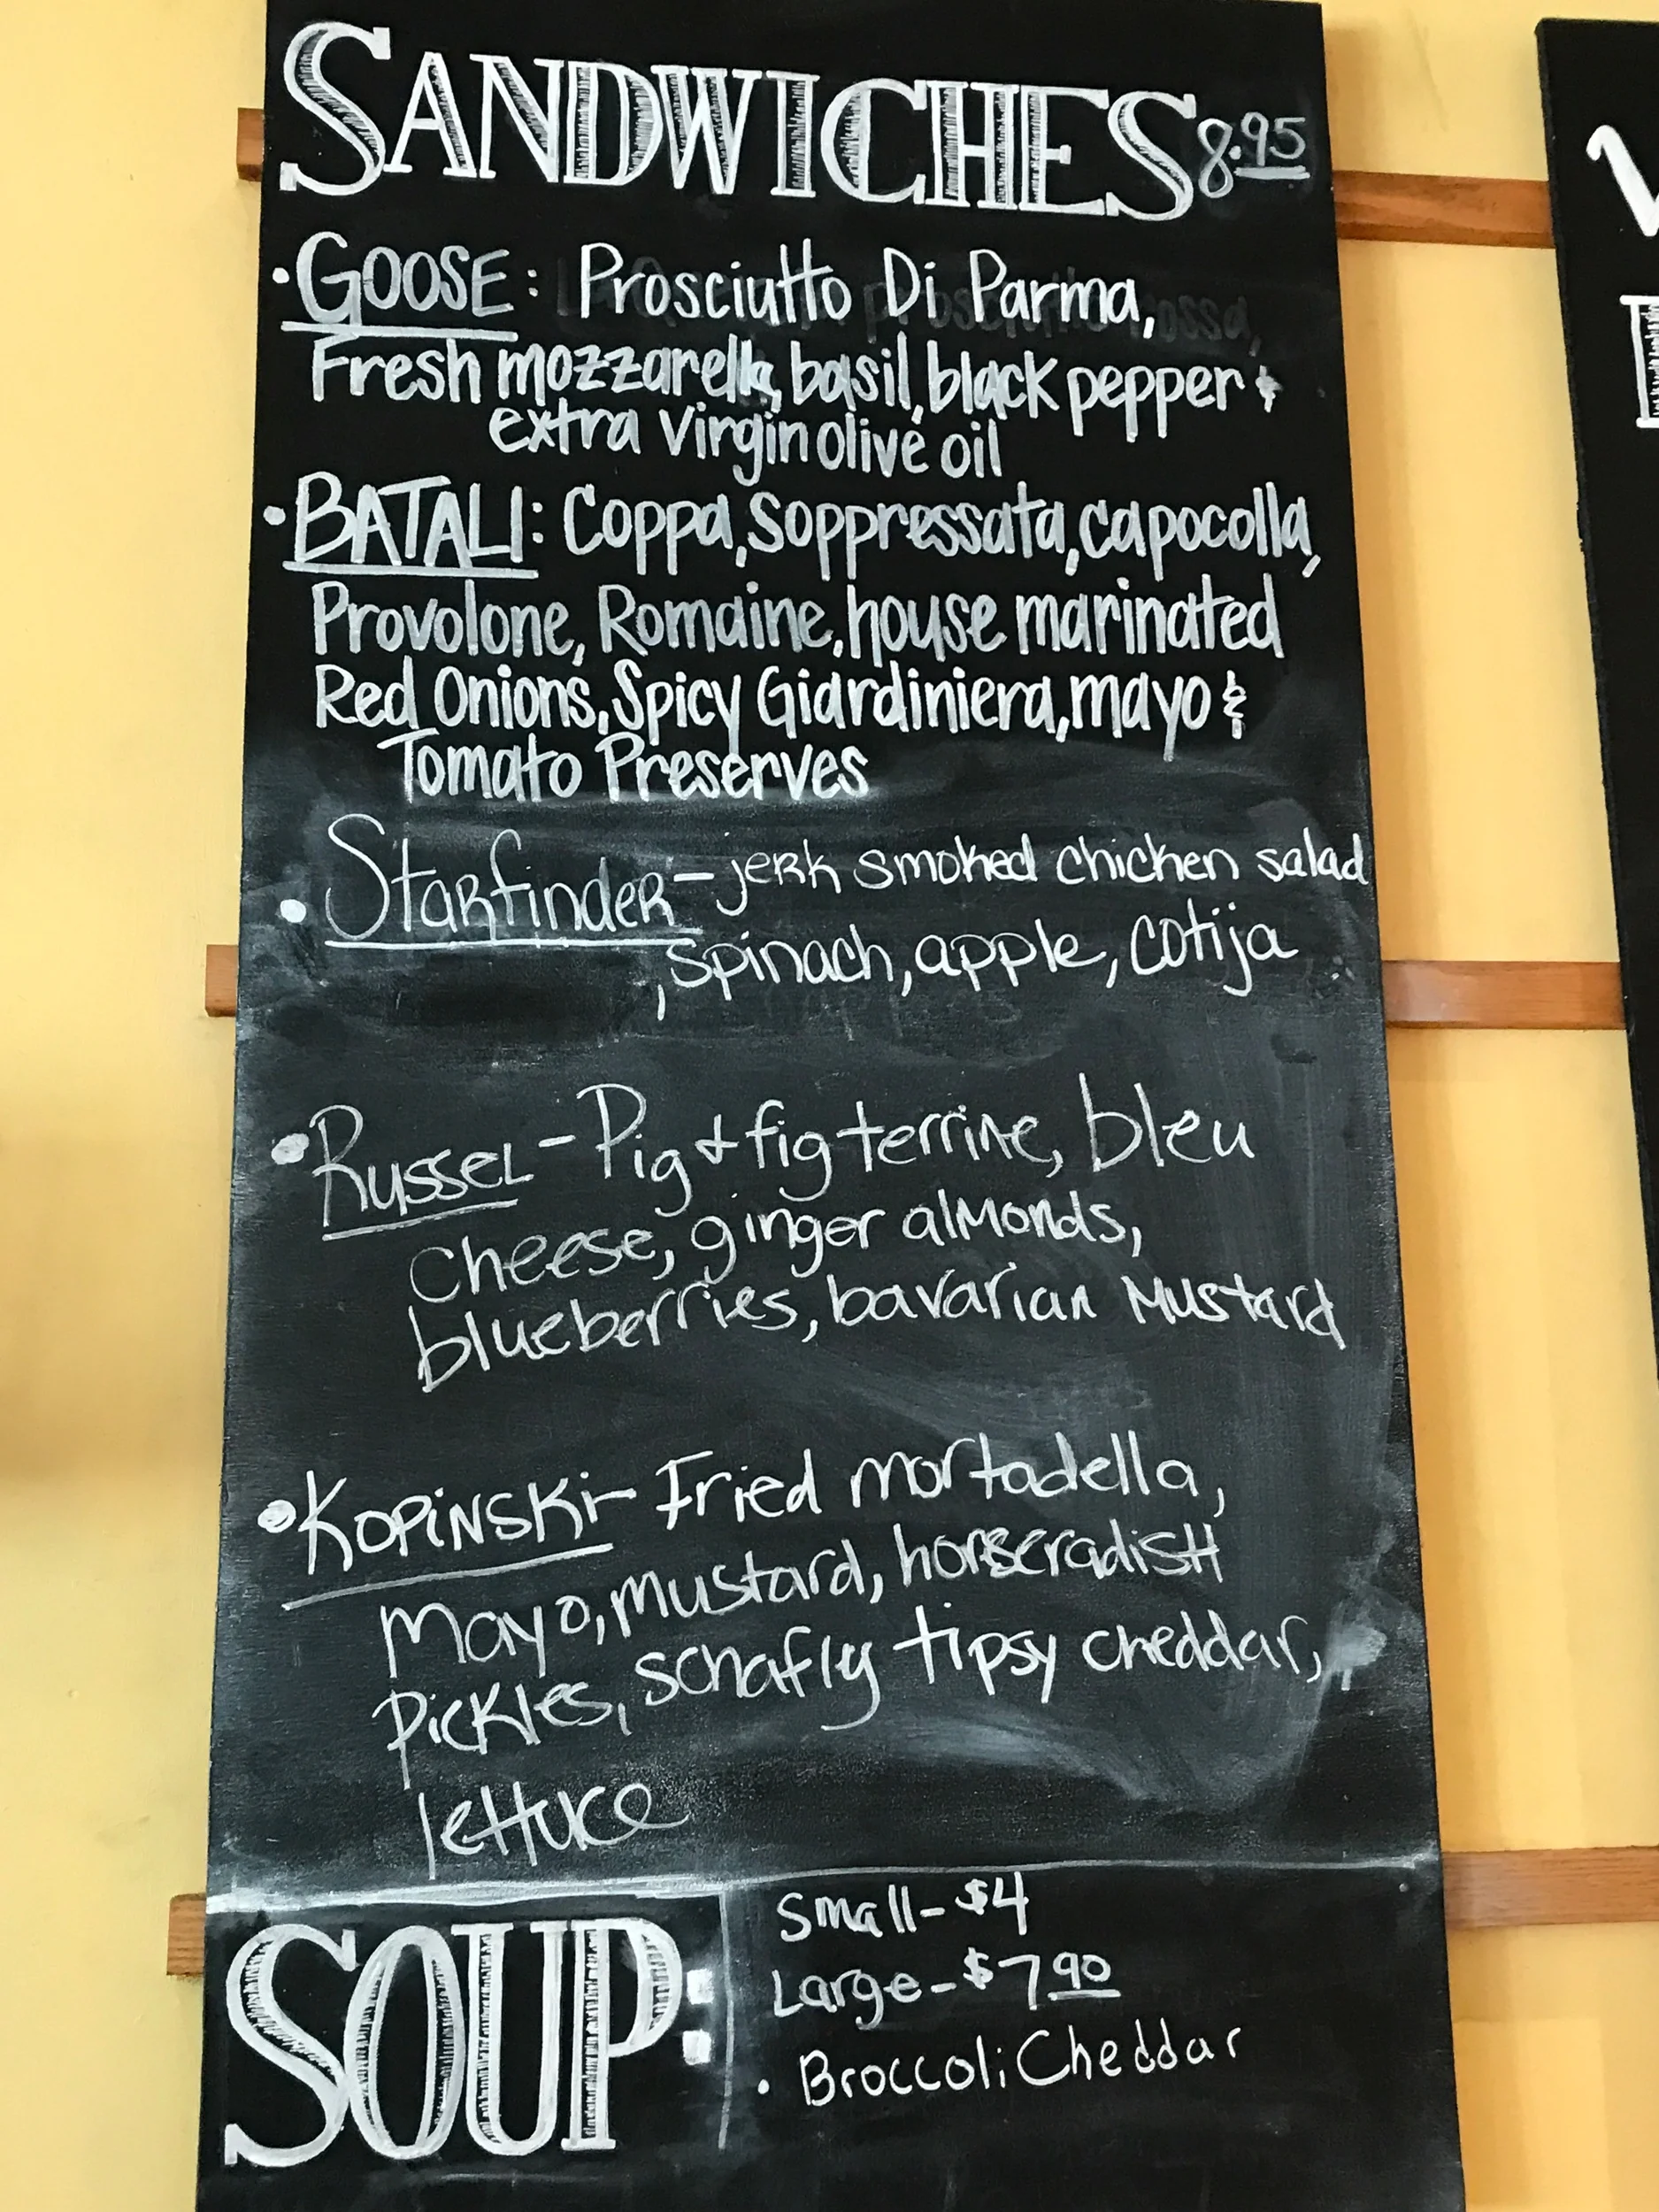 SANDWICHES 8.95
• GOOSE: Prosciutto Di Parma,
Fresh mozzarella, basil, black pepper &
extra Virgin olive oil
• BATALI: Coppa, Soppressata, capocolla,
Provolone, Romaine, house marinated
Red Onions, Spicy Giardiniera, mayo &
Tomato Preserves
• Starfinder - jerk smoked chicken salad
, spinach, apple, cotija
• Russel - Pig & fig terrine, bleu
cheese, ginger almonds,
blueberries, bavarian mustard
• Kopinski - Fried mortadella,
mayo, mustard, horseradish
pickles, schafly tipsy cheddar,
lettuce
SOUP:
Small - $4
Large - $7.90
• Broccoli Cheddar